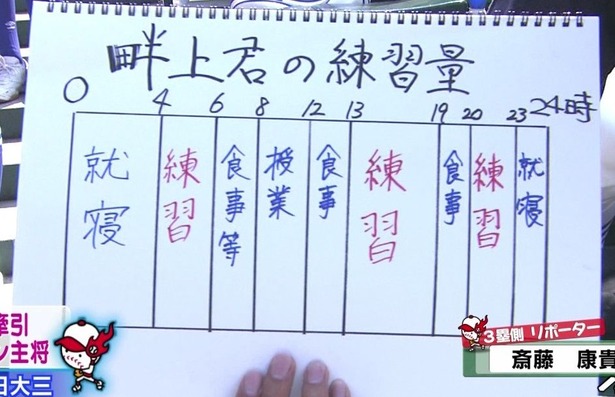 畔上君の練習量
0 4 6 8 12 13 19 20 23 24時
就寝
練習
食事等
授業
食事
練習
食事
練習
就寝
牽引
ン主将
日大三
3塁側 リポーター
斎藤 康貴